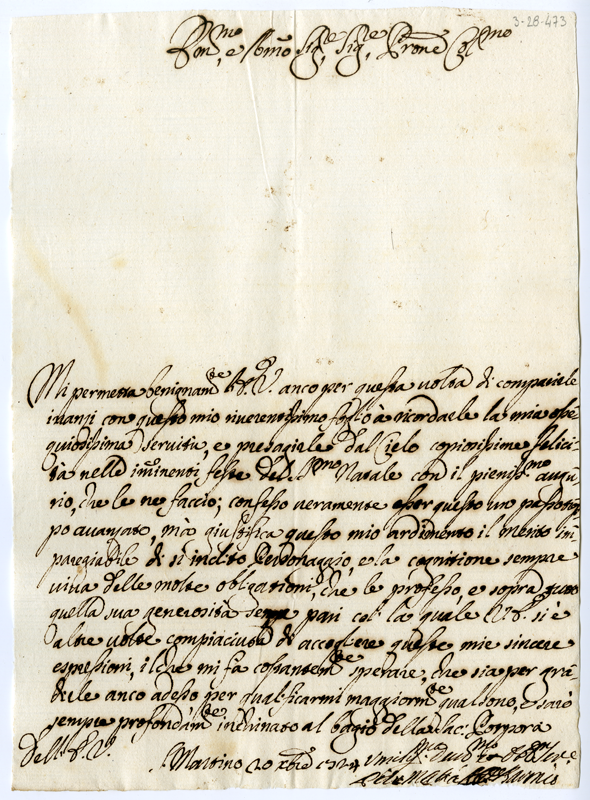 3-28-473
Rmo
Pon, e Sigre Sigre Prone Colmo
Mi permetta benignamte V.E. anco per questa volta di comparirle
inanzi con questo mio riverentissimo foglio à ricordarle la mia osse
quiosissima servitù, e presagirle dal Cielo copiosissime felici-
tà nelle imminenti feste del Smo Natale con il pienissmo augu-
rio, che le ne faccio; confesso veramente esser questo un passo trop
po avanzato, mà giustifica questo mio ardimento il merito im
pareggiabile di sì inclito Personaggio, e la cognitione sempre
viva delle molte obligationi, che le professo, e sopra tutto
quella sua generosità senza pari col la quale V.E. si è
altre volte compiaciuta di accogliere queste mie sincere
espressioni, il che mi fà costantemte sperare, che sia per gra-
dirle anco adesso per qualificarmi maggiormte qual sono, e sarò
sempre profondamte inchinato al bagio della Sac: Porpora
Dell' E.V.
Martino 20 Xbre 1724